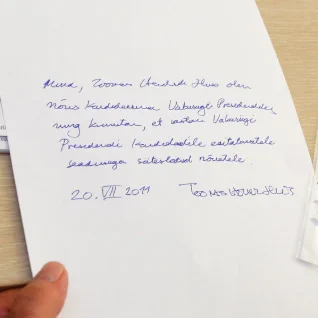 Mina, Toomas Hendrik Ilves olen
nõus kandideerima Vabariigi Presidendiks
ning kinnitan, et vastan Vabariigi
Presidendi kandidaadile esitatavatele
seadusega sätestatud nõuetele.
20. VII 2011 Toomas Hendrik Ilves